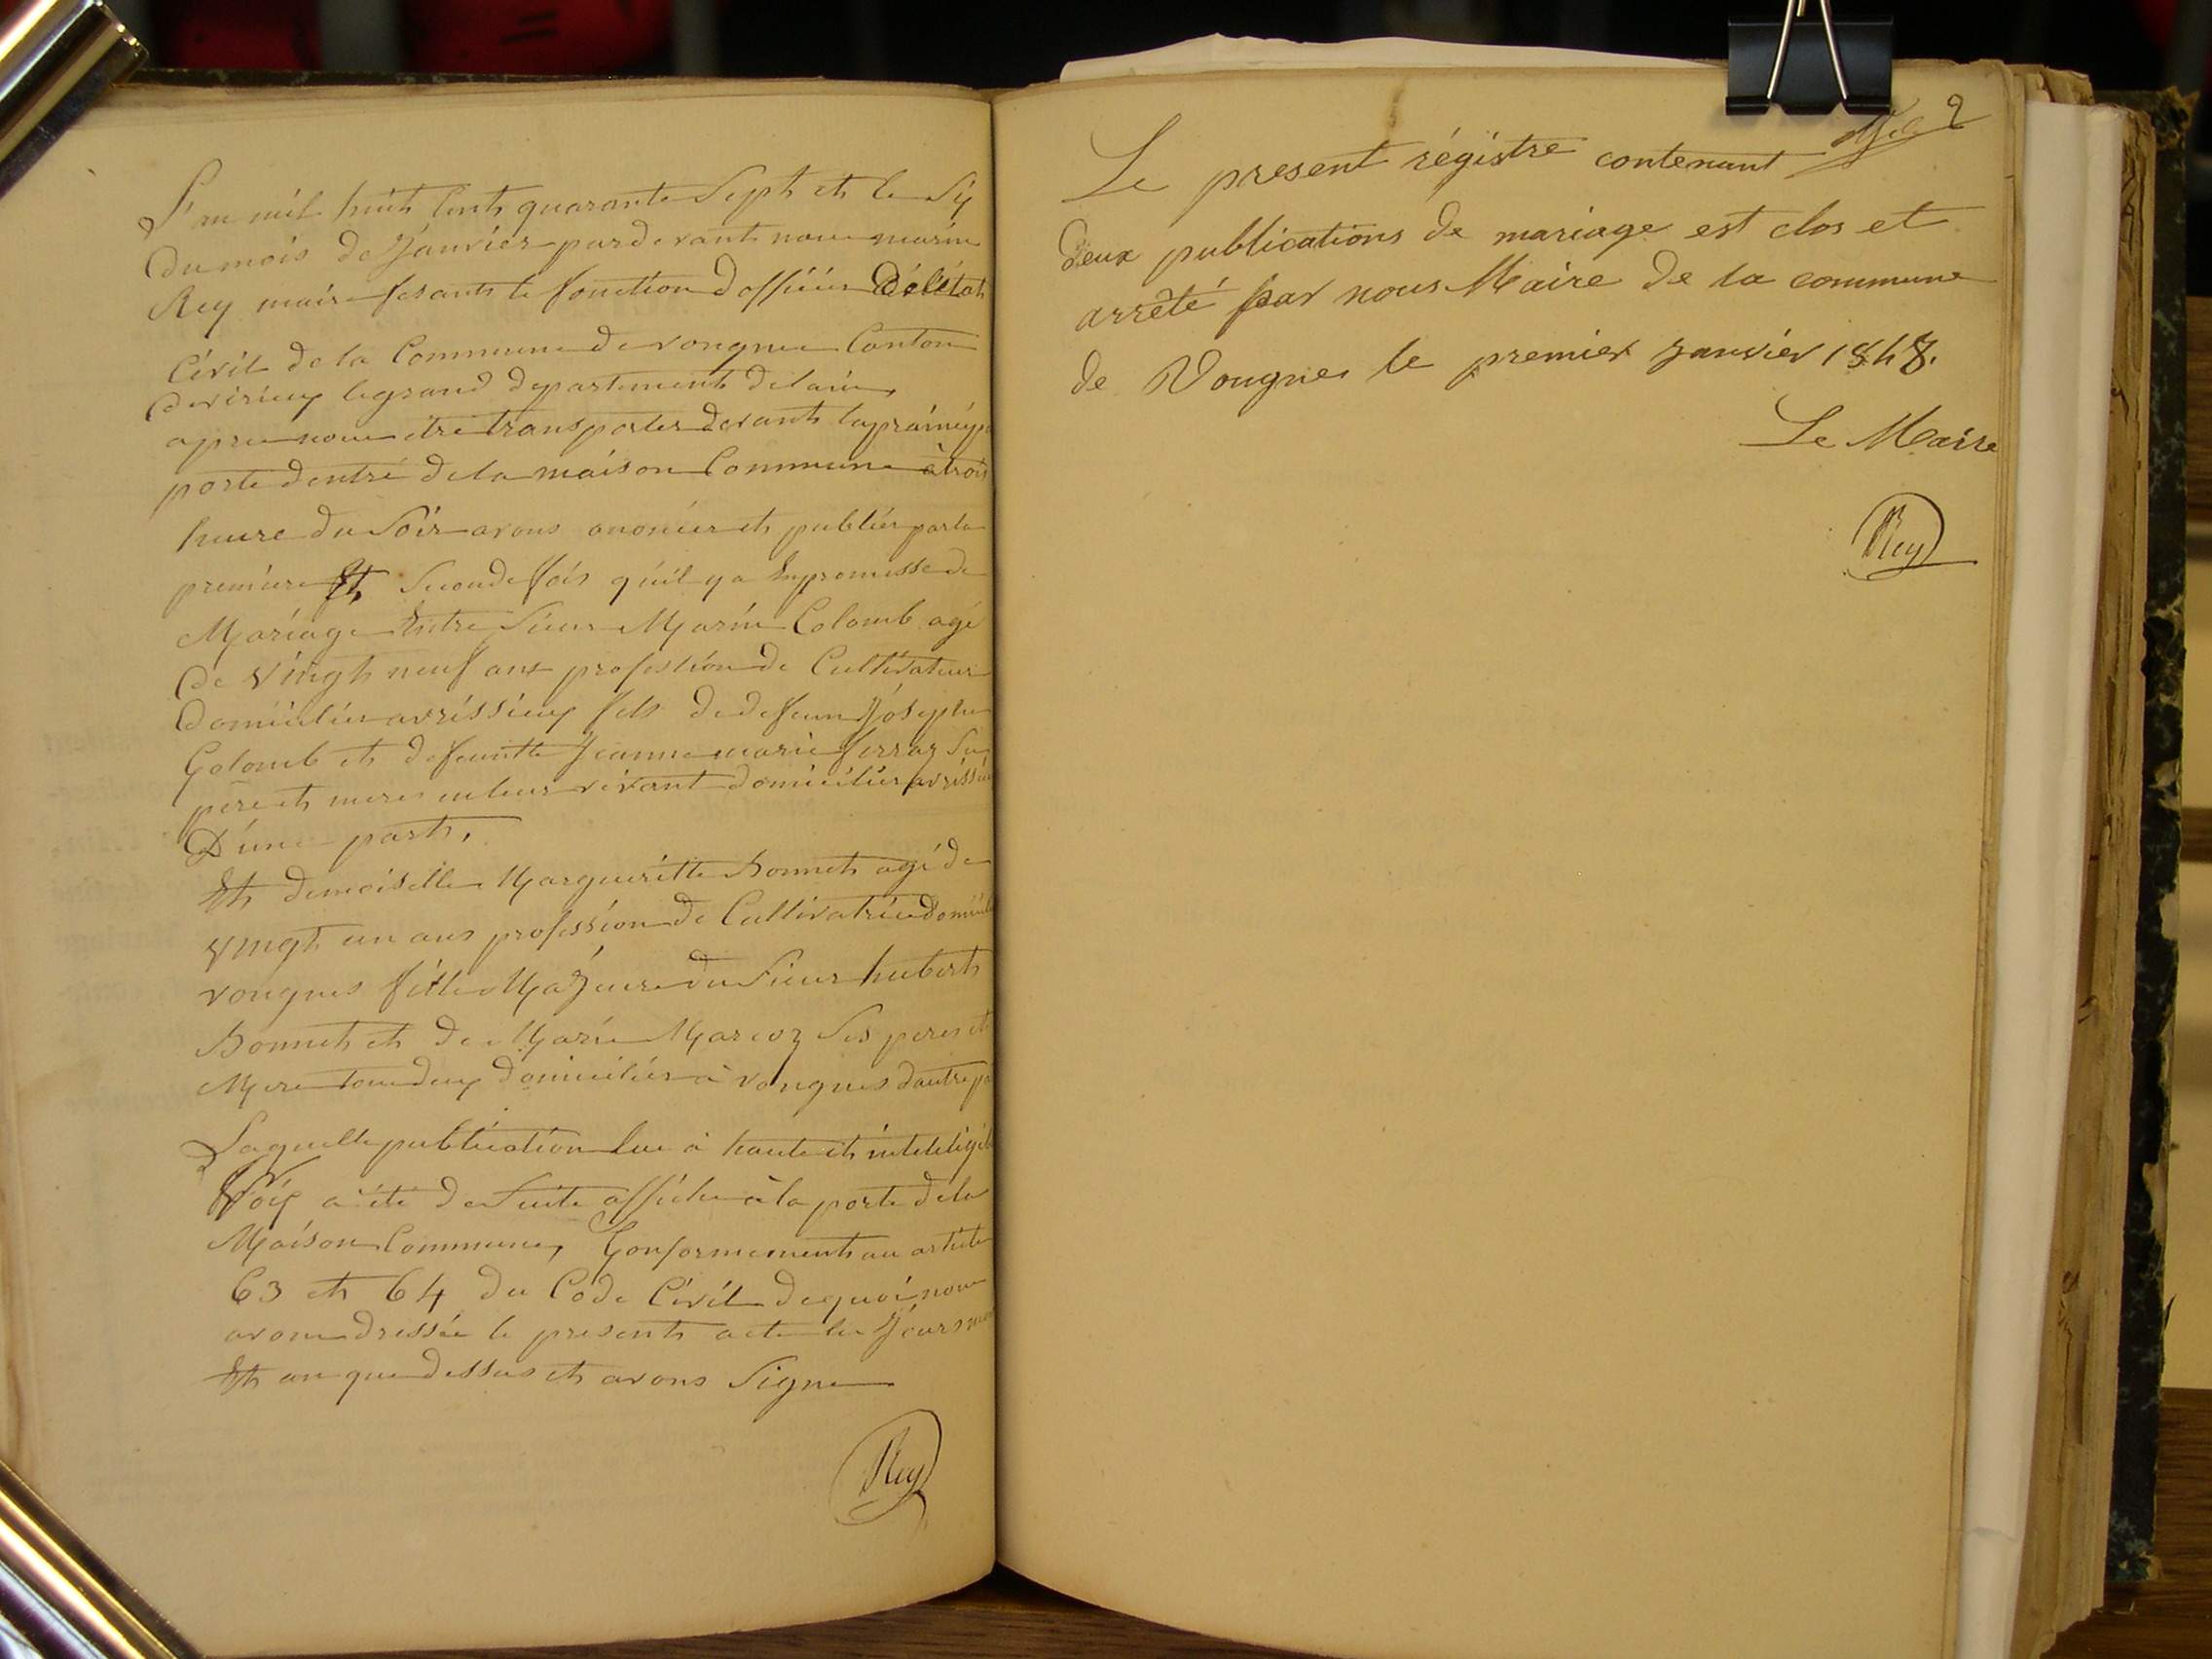 L'an mil huit Cent quarante Sept et le Six
du mois de Janvier par devant nous marin
Rey maire fesant le fonction d'officier Dé létat
Civil de la Commune de vongnes Canton
de virieux legrand departement de lain
apres nous etre transporter devant la
porte dentré de la maison Commune à trois
heure du Soir avons anoncer et publier par la
premiere Et Seconde fois quil y a Enpromesse de
Mariage Entre Sieur Marin Colomb agé
de Vingt neuf ans profession de Cultivateur
domicilier fils de defeunt Joseph
Colomb et defeuntte Jeanne marie ferraz Ses
père et mere enleur vivant domicilier
D'une part,
Et demoiselle Margueritte Bonnet agé de
Vingt un ans profession de Cultivatrice
vongnes fille Majeure du Sieur hubert
Bonnet et de Marie Marcoz Ses peres et
Mere tou deux domicilier a vongnes dautre
Laquelle publication lue à haute et
Voix a été de Suite afficher à la porte dela
Maison Commune, Conformement au article
63 et 64 du Code Civil dequoi nous
avons dressée le present acte les Jours
Et an que dessus et avons Signe
Rey
2
Le present régistre contenant
deux publications de mariage est clos et
arrêté par nous Maire de la commune
de Vougnes le premier janvier 1848.
Le Maire
Rey